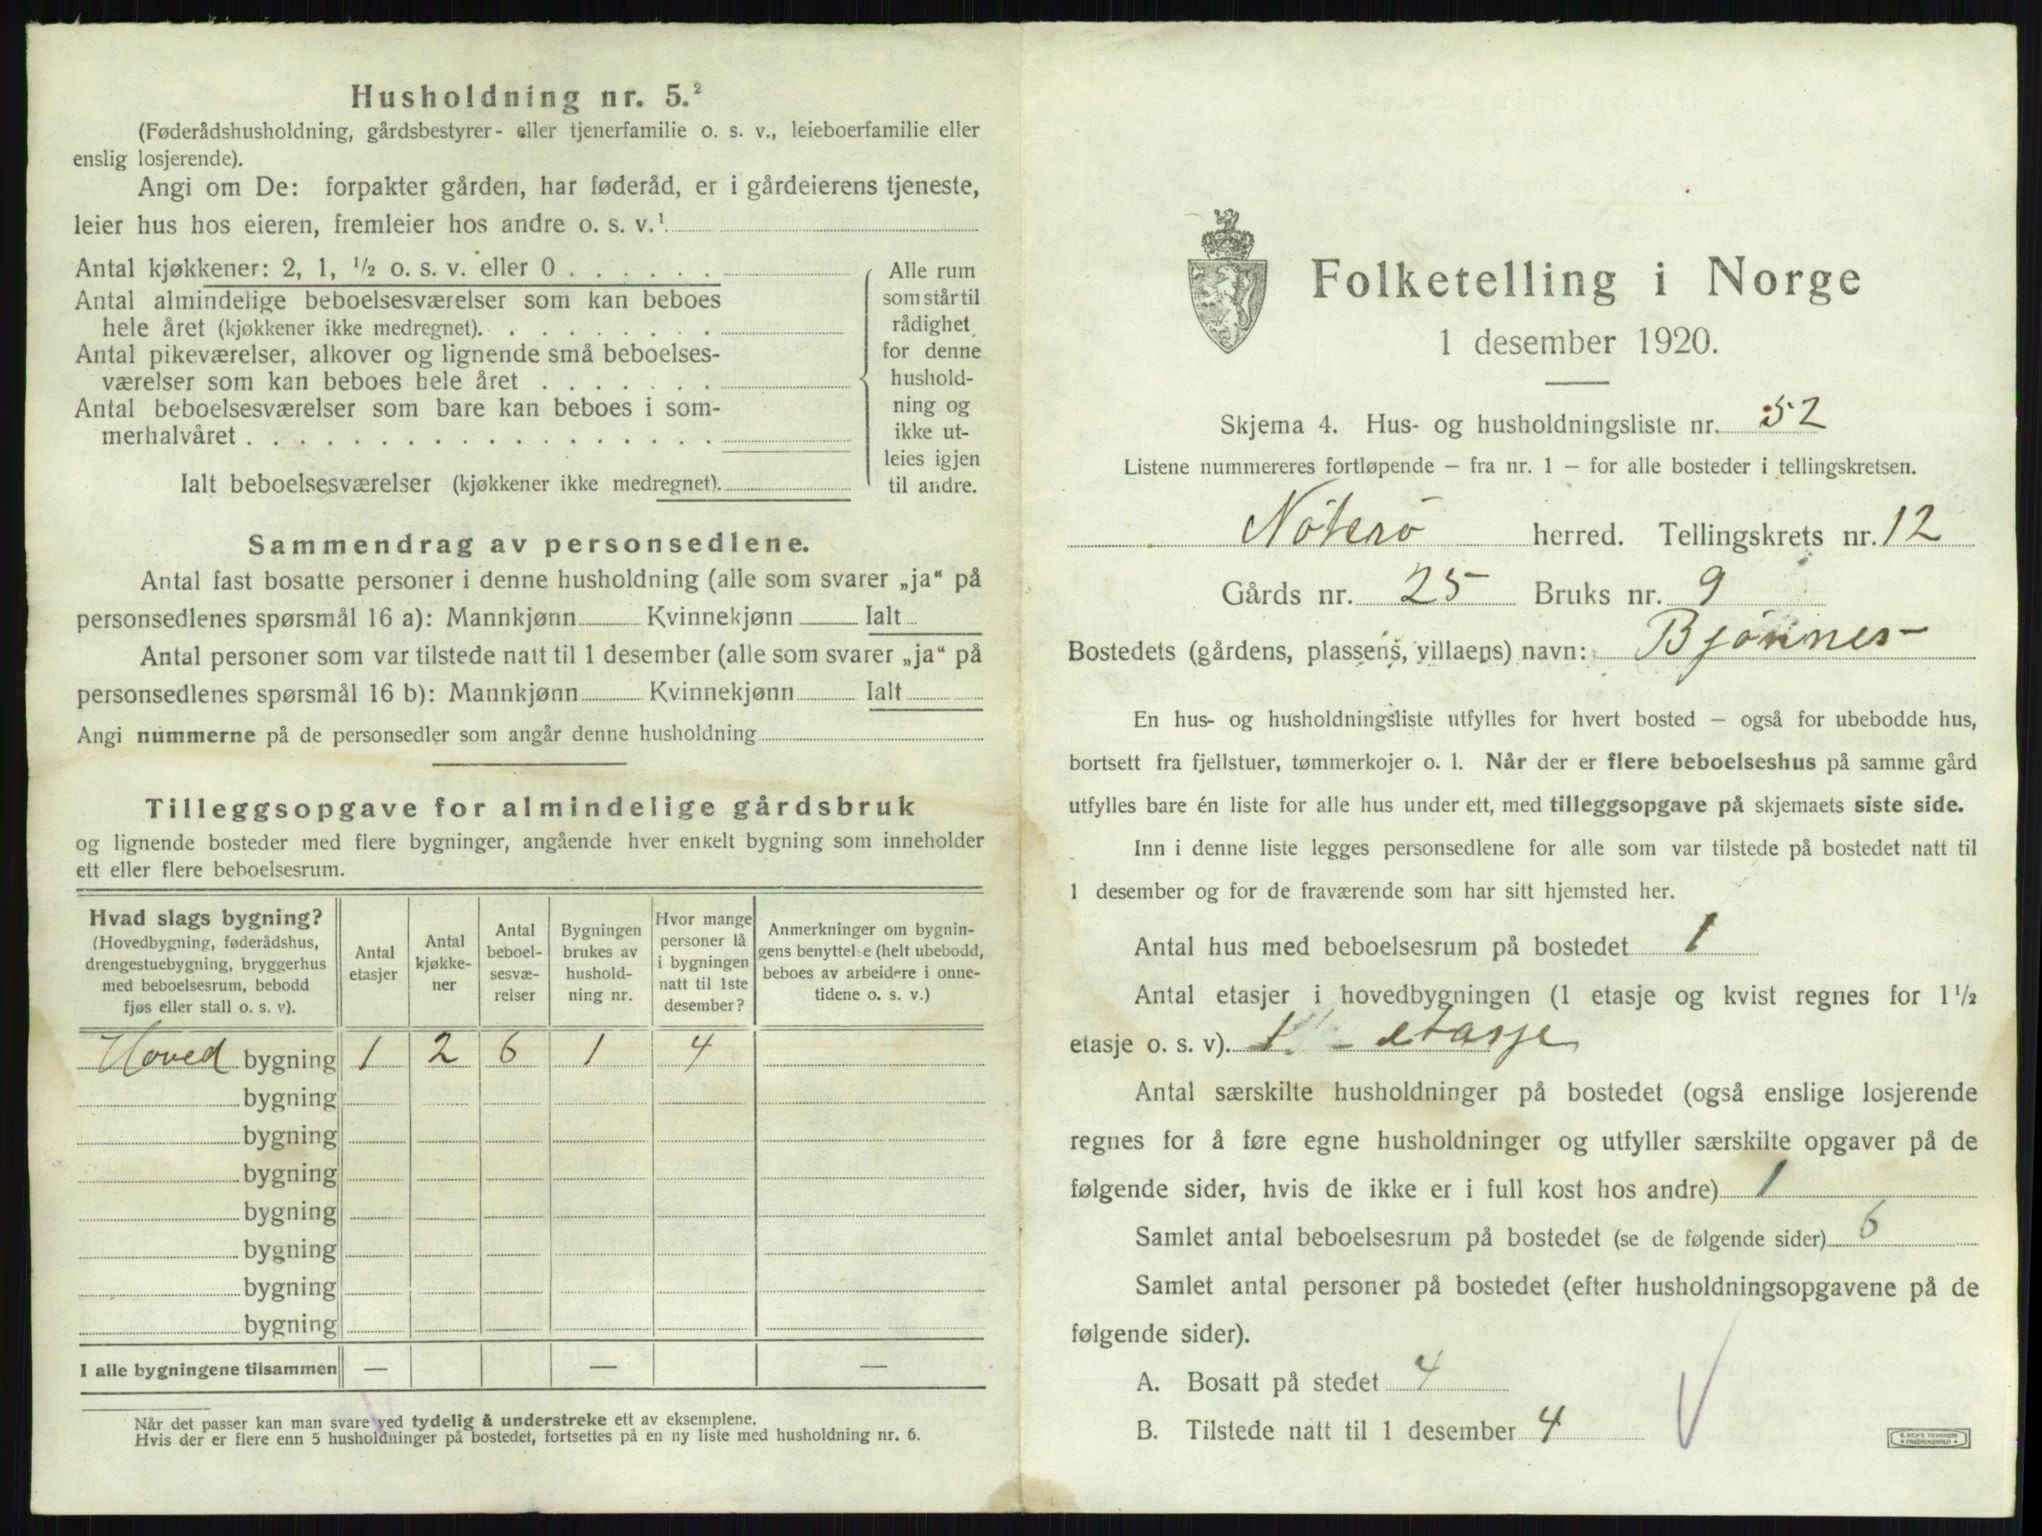 Husholdning nr. 5.²
(Føderådshusholdning, gårdsbestyrer- eller tjenerfamilie o. s. v., leieboerfamilie eller
enslig losjerende).
Angi om De: forpakter gården, har føderåd, er i gårdeierens tjeneste,
leier hus hos eieren, fremleier hos andre o. s. v.¹
Antal kjøkkener: 2, 1, ½ o. s. v. eller 0 . . . . . .
Antal almindelige beboelsesværelser som kan beboes
hele året (kjøkkener ikke medregnet). . . . . . . . .
Antal pikeværelser, alkover og lignende små beboelses-
værelser som kan beboes hele året . . . . . . .
Antal beboelsesværelser som bare kan beboes i som-
merhalvåret . . . . . . . . . . . . . . . . . .
Ialt beboelsesværelser (kjøkkener ikke medregnet).
Alle rum
som står til
rådighet
for denne
hushold-
ning og
ikke ut-
leies igjen
til andre.
Sammendrag av personsedlene.
Antal fast bosatte personer i denne husholdning (alle som svarer „ja“ på
personsedlenes spørsmål 16 a): Mannkjønn Kvinnekjønn Ialt
Antal personer som var tilstede natt til 1 desember (alle som svarer „ja“ på
personsedlenes spørsmål 16 b): Mannkjønn Kvinnekjønn Ialt
Angi nummerne på de personsedler som angår denne husholdning
Tilleggsopgave for almindelige gårdsbruk
og lignende bosteder med flere bygninger, angående hver enkelt bygning som inneholder
ett eller flere beboelsesrum.
Hvad slags bygning?
(Hovedbygning, føderådshus,
drengestuebygning, bryggerhus
med beboelsesrum, bebodd
fjøs eller stall o. s. v).
Antal
etasjer
Antal
kjøkke-
ner
Antal
beboel-
sesvæ-
relser
Bygningen
brukes av
hushold-
ning nr.
Hvor mange
personer lå
i bygningen
natt til 1ste
desember?
Anmerkninger om bygnin-
gens benyttelse (helt ubebodd,
beboes av arbeidere i onne-
tidene o. s. v.)
Hoved bygning 1 2 6 1 4
bygning
bygning
bygning
bygning
bygning
bygning
bygning
I alle bygningene tilsammen — — —
Når det passer kan man svare ved tydelig å understreke ett av eksemplene.
Hvis der er flere enn 5 husholdninger på bostedet, fortsettes på en ny liste med husholdning nr. 6.
Folketelling i Norge
1 desember 1920.
Skjema 4. Hus- og husholdningsliste nr. 52
Listene nummereres fortløpende – fra nr. 1 – for alle bosteder i tellingskretsen.
Nøterø herred. Tellingskrets nr. 12
Gårds nr. 25 Bruks nr. 9
Bostedets (gårdens, plassens, villaens) navn: Bjønnes
En hus- og husholdningsliste utfylles for hvert bosted – også for ubebodde hus,
bortsett fra fjellstuer, tømmerkojer o. l. Når der er flere beboelseshus på samme gård
utfylles bare én liste for alle hus under ett, med tilleggsopgave på skjemaets siste side.
Inn i denne liste legges personsedlene for alle som var tilstede på bostedet natt til
1 desember og for de fraværende som har sitt hjemsted her.
Antal hus med beboelsesrum på bostedet 1
Antal etasjer i hovedbygningen (1 etasje og kvist regnes for 1½
etasje o. s. v). 1 – etasje
Antal særskilte husholdninger på bostedet (også enslige losjerende
regnes for å føre egne husholdninger og utfyller særskilte opgaver på de
følgende sider, hvis de ikke er i full kost hos andre) 1
Samlet antal beboelsesrum på bostedet (se de følgende sider) 6
Samlet antal personer på bostedet (efter husholdningsopgavene på de
følgende sider).
A. Bosatt på stedet 4
B. Tilstede natt til 1 desember 4